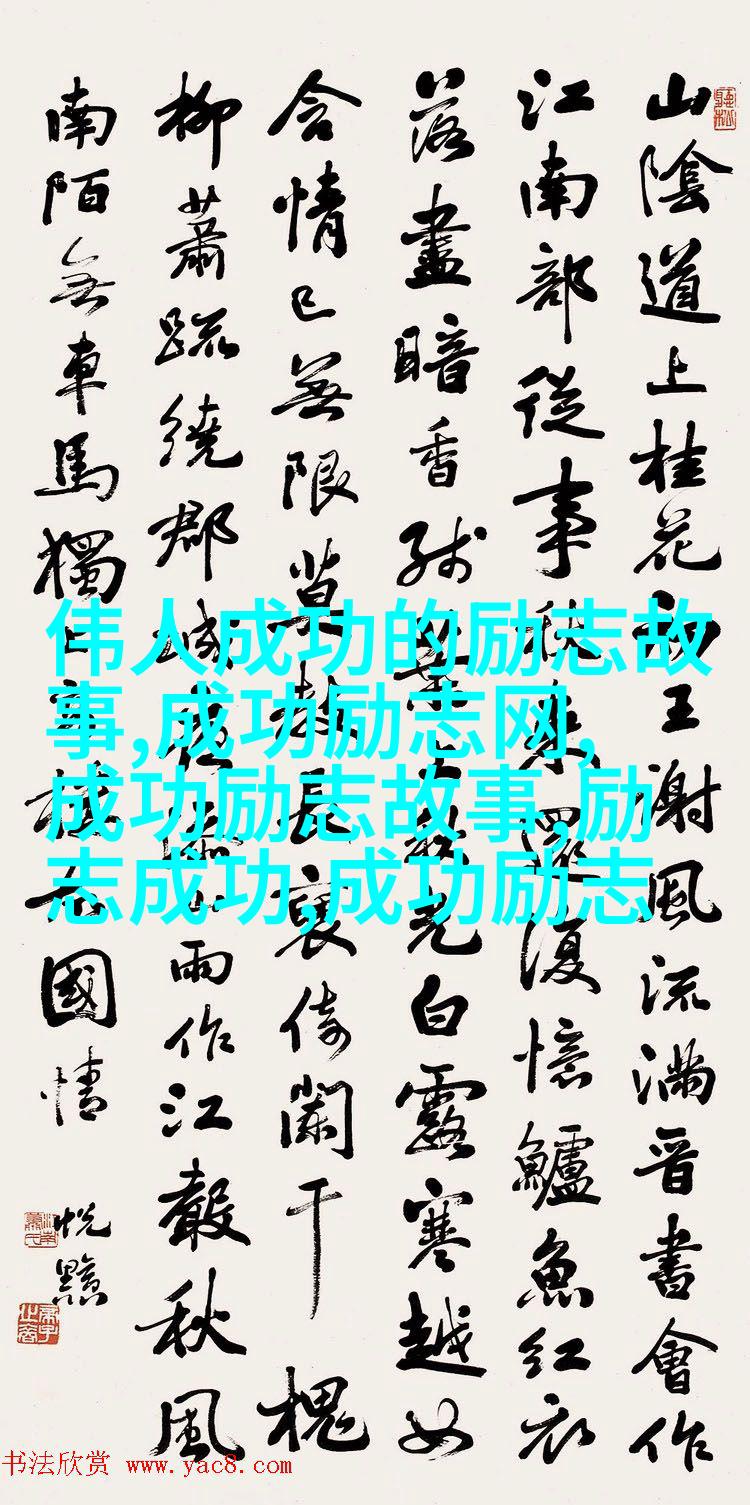 山陰道上桂花初王謝風流滿晉書會作
江南部從事秋來還復憶鱸魚紅衣
落盡暗香殘葉上秋光白露寒越女
含情已無限莫教長褎倚闌干 槐
柳蕭疏繞郡城夜添山雨作江聲秋風
南陌無車馬獨上高樓故國情
伟人成功的励志故
事,成功励志网,
成功励志故事,励
志成功,成功励志
书法欣赏 www.yac8.com